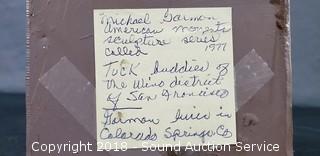 Michael Garman
American moments
sculpture series
called 1977
Tuck Buddies of
the Wino district
of San Francisco
Garman lives in
Colorado Springs Co
Copyright 2018 - Sound Auction Service